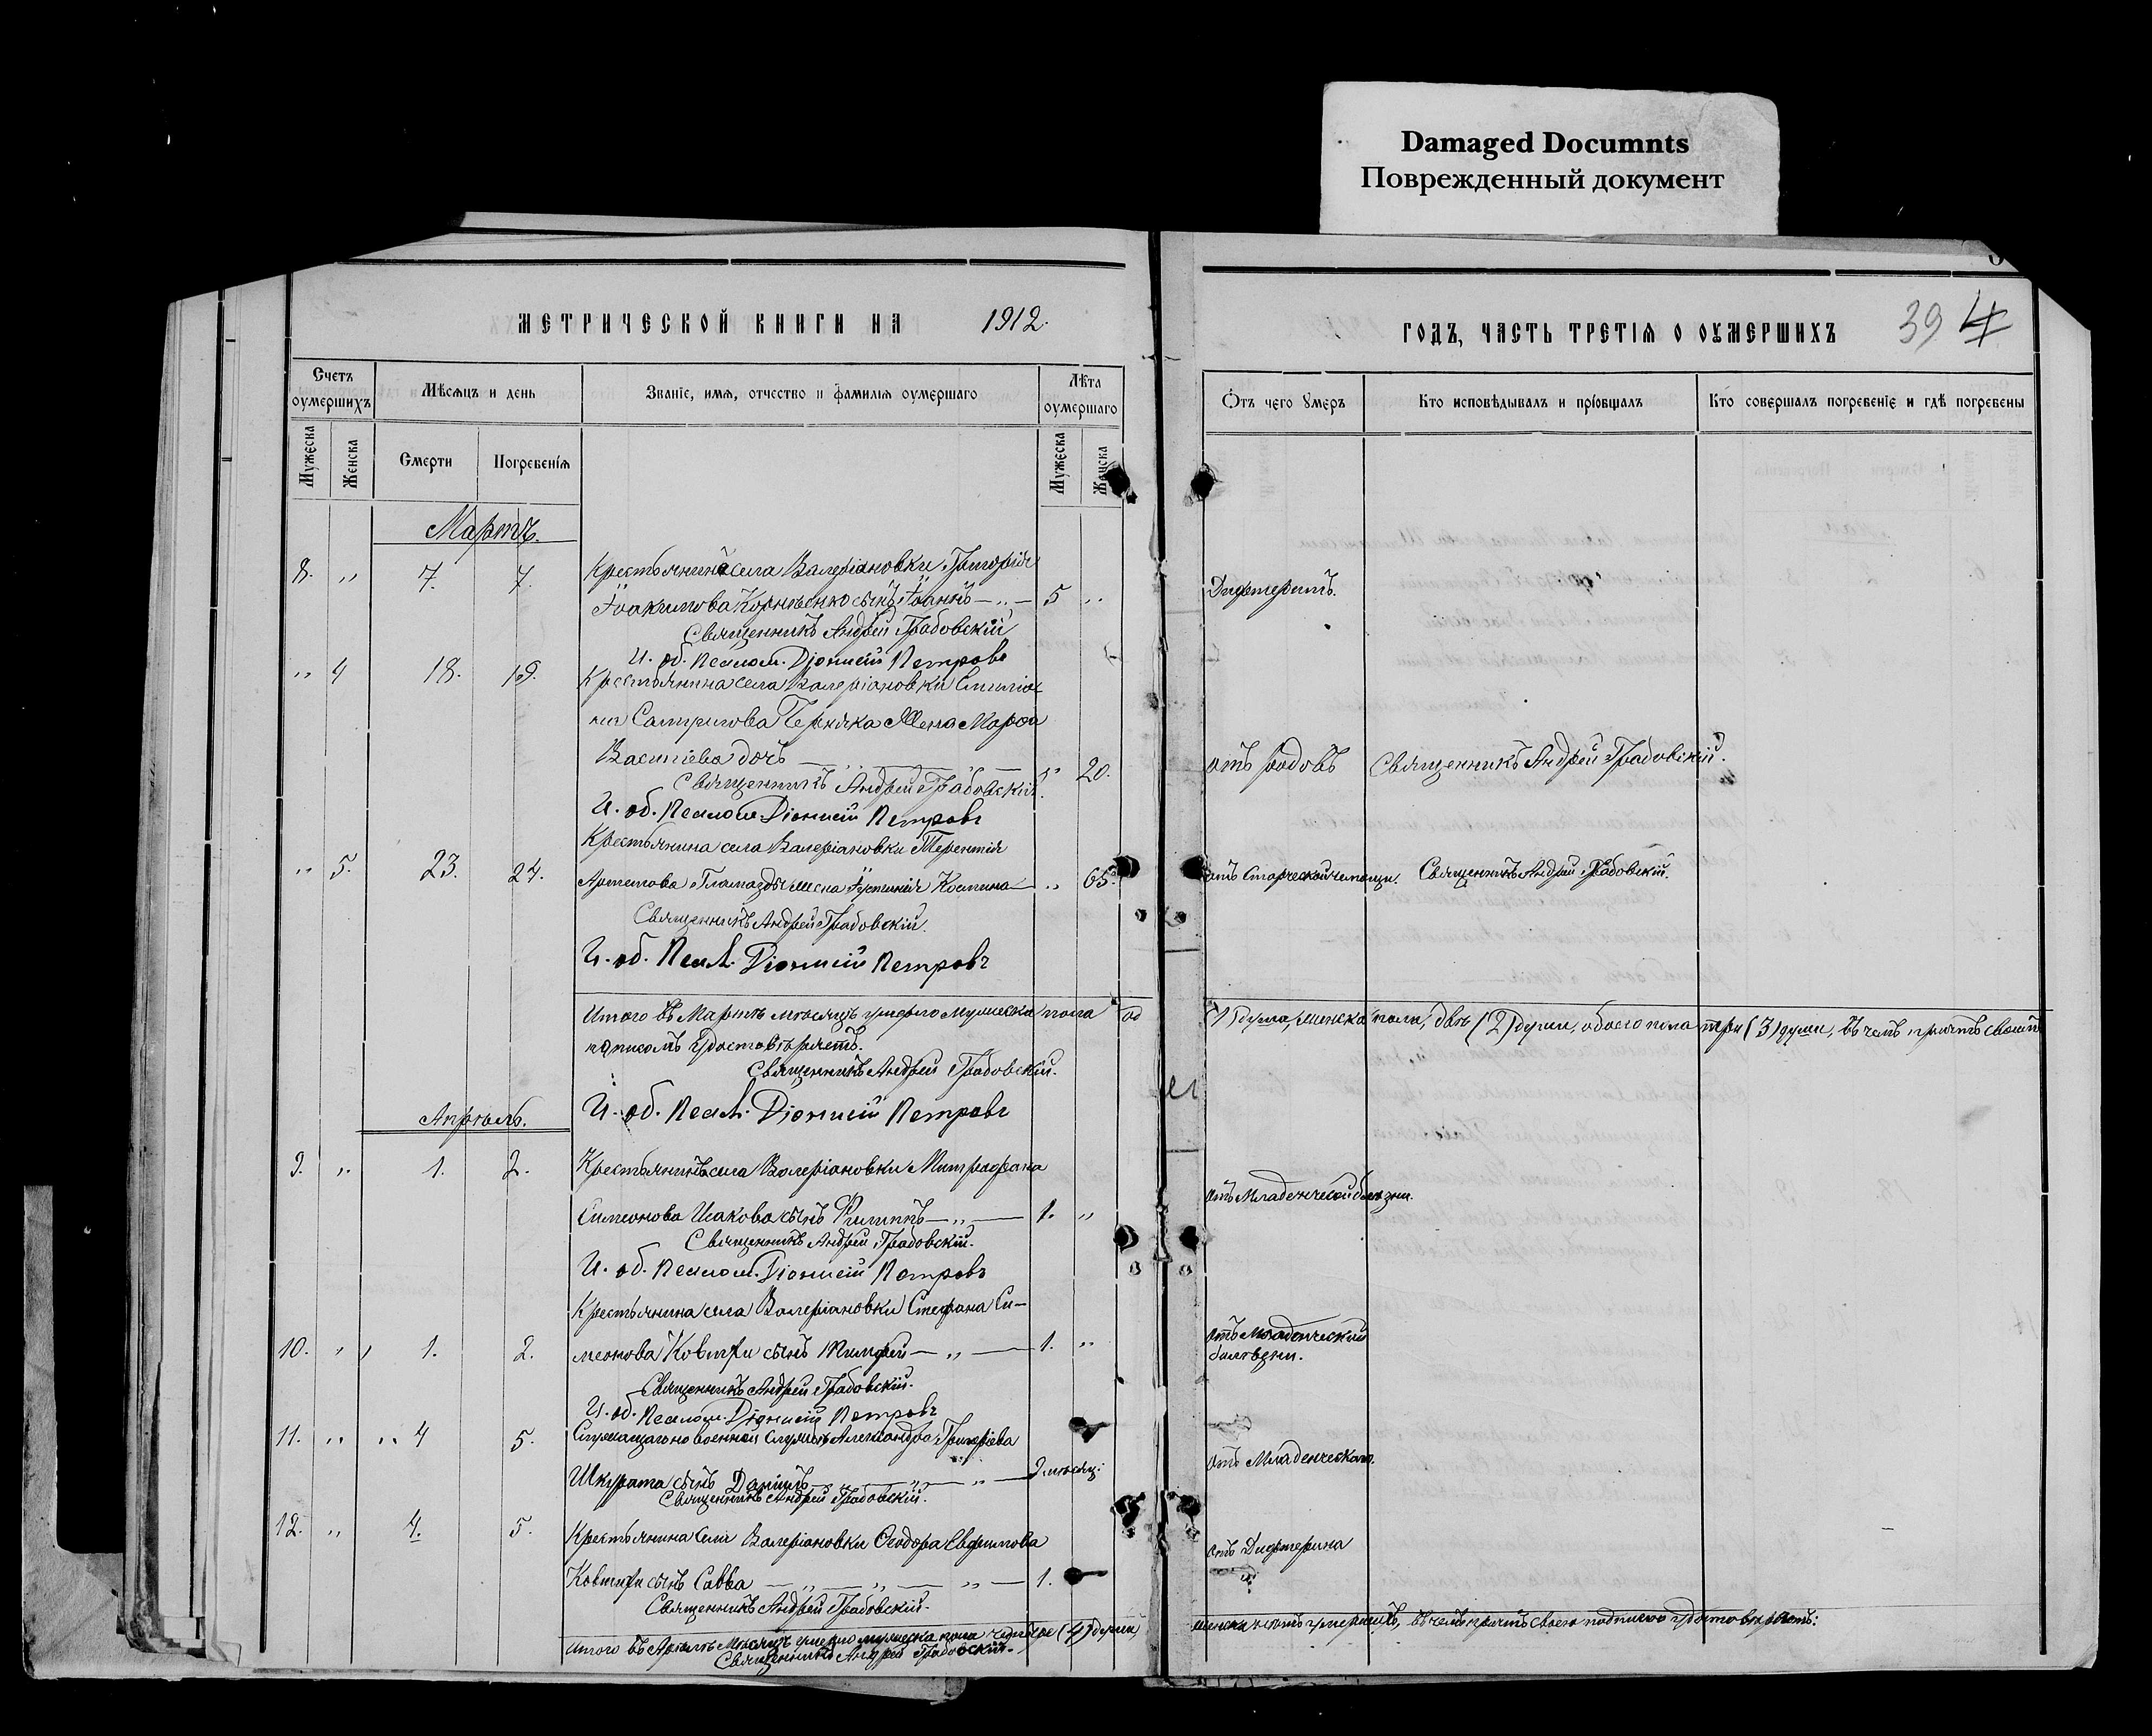 Damaged Documnts
Поврежденный документ
МЕТРИЧЕСКОЙ КНИГИ НА 1912.
Счетъ оумершихъ
Мѣсяцъ и день
Званіе, имя, отчество и фамилія оумершаго
Лѣта оумершаго
Мужеска
Женска
Смерти
Погребенія
Мужеска
Женска
Мартъ.
8. „ 7. 7. Крестьянина села Валеріановки Григорія
Іоакимова Корніенко сынъ Іоаннъ — „ — 5 „
Священникъ Андрей Грабовскій
И. об. Псалом. Діонисій Петровъ
„ 4 18. 19. Крестьянина села Валеріановки
жена Марфа
Василіева дочь — „ — „ — „ 20.
Священникъ Андрей Грабовскій.
И. об. Псалом. Діонисій Петровъ
Крестьянина села Валеріановки Терентія
„ 5. 23. 24. Артемова Гламазды жена Іустинія Космина — „ 65.
Священникъ Андрей Грабовскій.
И. об. Псал. Діонисій Петровъ
Итого въ Мартѣ мѣсяцѣ умерло мужеска пола од
подписомъ удостовѣряетъ.
Священникъ Андрей Грабовскій.
И. об. Псал. Діонисій Петровъ
Апрѣль.
9. „ 1. 2. Крестьянинъ села Валеріановки Митрофана
Симеонова Исакова сынъ Филиппъ — „ — 1. „
Священникъ Андрей Грабовскій.
И. об. Псалом. Діонисій Петровъ
Крестьянина села Валеріановки Стефана Си-
10. „ 1. 2. меонова Ковтири сынъ — „ — 1. „
Священникъ Андрей Грабовскій.
И. об. Псалом. Діонисій Петровъ
11. „ „ 4 5. Служащаго на военной службѣ Александра Григоріева
Шкурата сынъ Даніилъ — „ — „ — мѣсяц.
Священникъ Андрей Грабовскій.
12. „ 4. 5. Крестьянина села Валеріановки Ѳеодора Евфимова
Ковтири сынъ Савва — „ — „ — „ — 1.
Священникъ Андрей Грабовскій.
Итого въ Апрѣлѣ Мѣсяцѣ умерло мужеска пола четыре (4) души,
Священникъ Андрей Грабовскій.
ГОДЪ, ЧАСТЬ ТРЕТІЯ О ОУМЕРШИХЪ
39
Отъ чего умеръ
Кто исповѣдывалъ и пріобщалъ
Кто совершалъ погребеніе и гдѣ погребены
Дифтеритъ.
отъ родовъ Священникъ Андрей Грабовскій.
отъ Старческой немощи. Священникъ Андрей Грабовскій.
(1) душа, женска пола, двѣ (2) души, обоего пола три (3) души, въ чемъ причтъ своимъ
отъ Младенческой болѣзни.
отъ Младенческой
болѣзни.
отъ Младенческой.
отъ Дифтерита
женска нѣтъ умершихъ, въ чемъ причтъ своею подписью удостовѣряетъ: